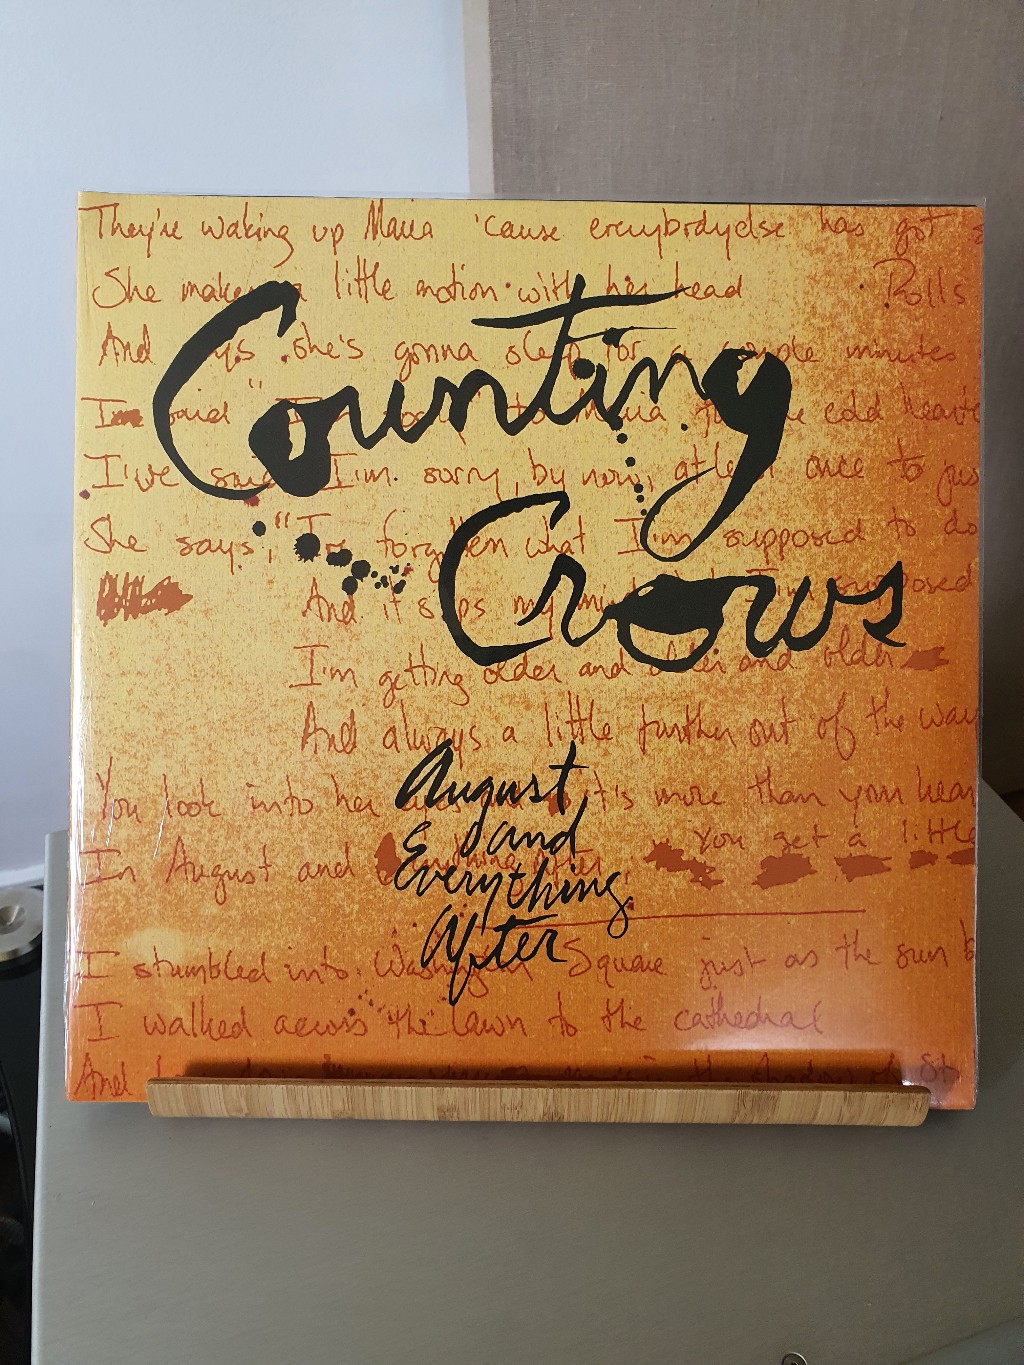 They're waking up Maria 'cause everybodyelse has got
She makes a little motion with her head Rolls
And says she's gonna sleep for a couple minutes
I said "I'm to Maria for the cold hearte
I've said I'm sorry, by now, at least once to jus
She says, "I've forgotten what I'm supposed to do
And it slips my mind I'm supposed
I'm getting older and older and older
And always a little further out of the way
You look into her it's more than your hear
In August and everything after You get a little
I stumbled into Washington Square just as the sun b
I walked across the lawn to the cathedral
And in the shadow of st
Counting
Crows
August
and
Everything
After